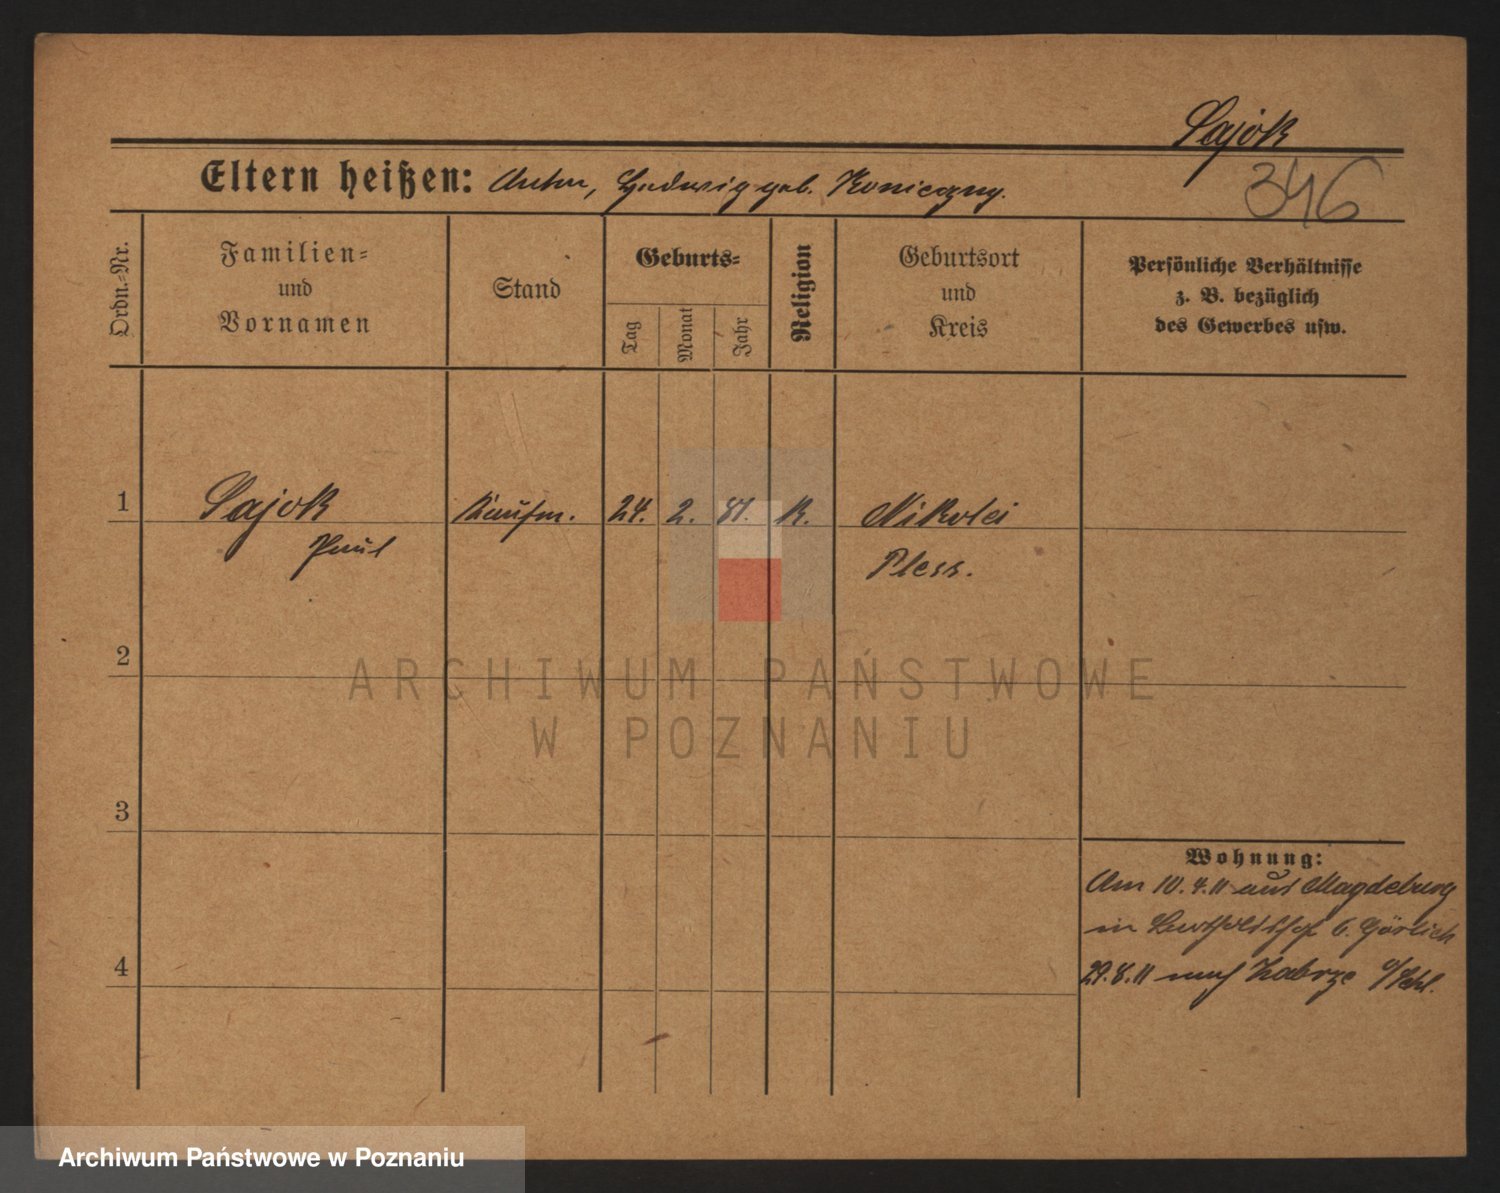 Sajok
346
Eltern heißen: Anton, Hedwig geb. Konieczny.
Ordn.-Nr.
Familien-
und
Vornamen
Stand
Geburts-
Tag
Monat
Jahr
Religion
Geburtsort
und
Kreis
Persönliche Verhältnisse
z. B. bezüglich
des Gewerbes usw.
1 Sajok Kaufm. 24. 2. 81. K. Nikolei
Paul Pless.
2
3
4
Wohnung:
Am 10.4.11 aus Magdeburg
in b. Görlich
29.8.11 nach Zabrze o/Schl.
ARCHIWUM PAŃSTWOWE
W POZNANIU
Archiwum Państwowe w Poznaniu